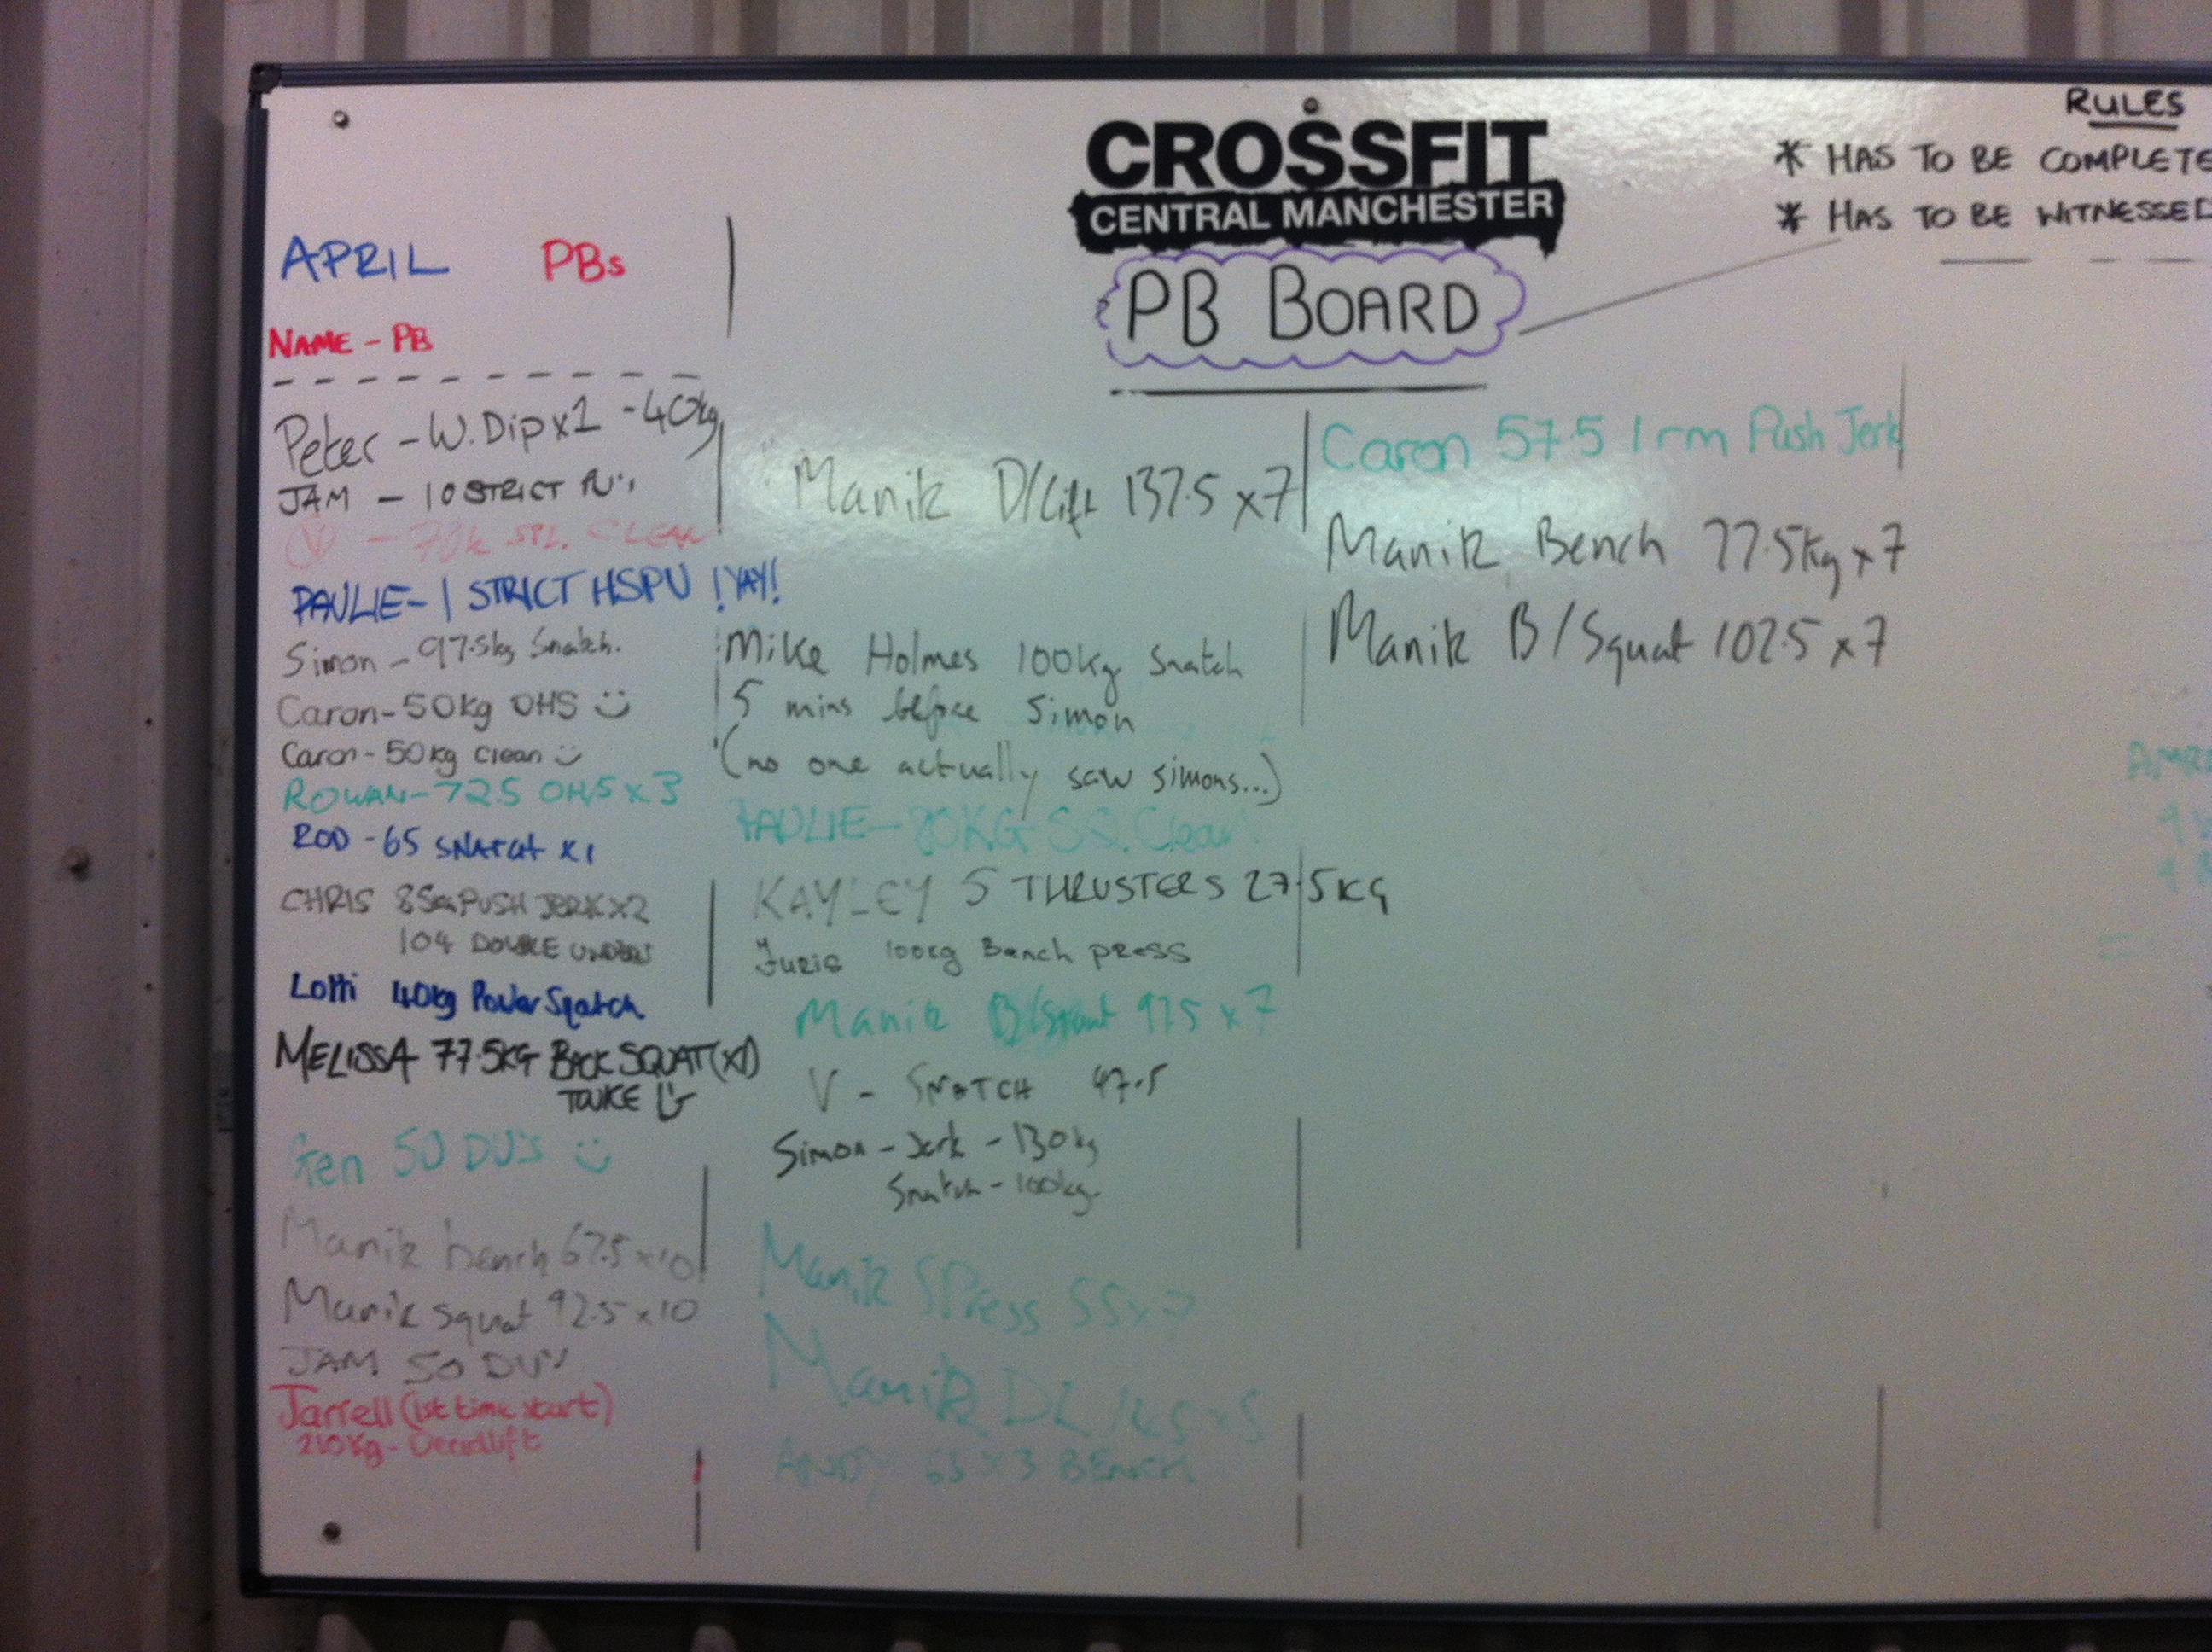 CROSSFIT
CENTRAL MANCHESTER
PB BOARD
RULES
* HAS TO BE COMPLETE
* HAS TO BE WITNESSED
APRIL PBs
NAME - PB
Peter - W.Dip x1 - 40kg
JAM - 10 STRICT
PAULIE - 1 STRICT HSPU !YAY!
Simon - 97.5kg Snatch.
Caron - 50kg OHS
Caron - 50kg clean
ROWAN - 72.5 OHS x 3
ROD - 65 SNATCH x1
CHRIS 85kg PUSH JERK x2
104 DOUBLE UNDERS
Lotti 40kg Power Snatch
MELISSA 77.5KG BACK SQUAT (x1)
Gen 50 DU'S
Manik bench 67.5 x 10
Manik squat 92.5 x 10
JAM 50 DU's
Jarrell (1st time start)
210kg - Deadlift
Manik D/lift 137.5 x 7
Mike Holmes 100kg Snatch
5 mins before Simon
(no one actually saw simons...)
PAULIE - 80KG SQ. Clean
KAYLEY 5 THRUSTERS 27.5KG
Juris 100kg Bench press
Manik B/Squat 97.5 x 7
V - SNATCH 47.5
Simon - Jerk - 130kg
Snatch - 100kg.
Manik SPress 55 x 7
Manik DL 145 x 5
ANDY 65 x 3 BENCH
Caron 57.5 1rm Push Jerk
Manik Bench 77.5kg x 7
Manik B/Squat 102.5 x 7